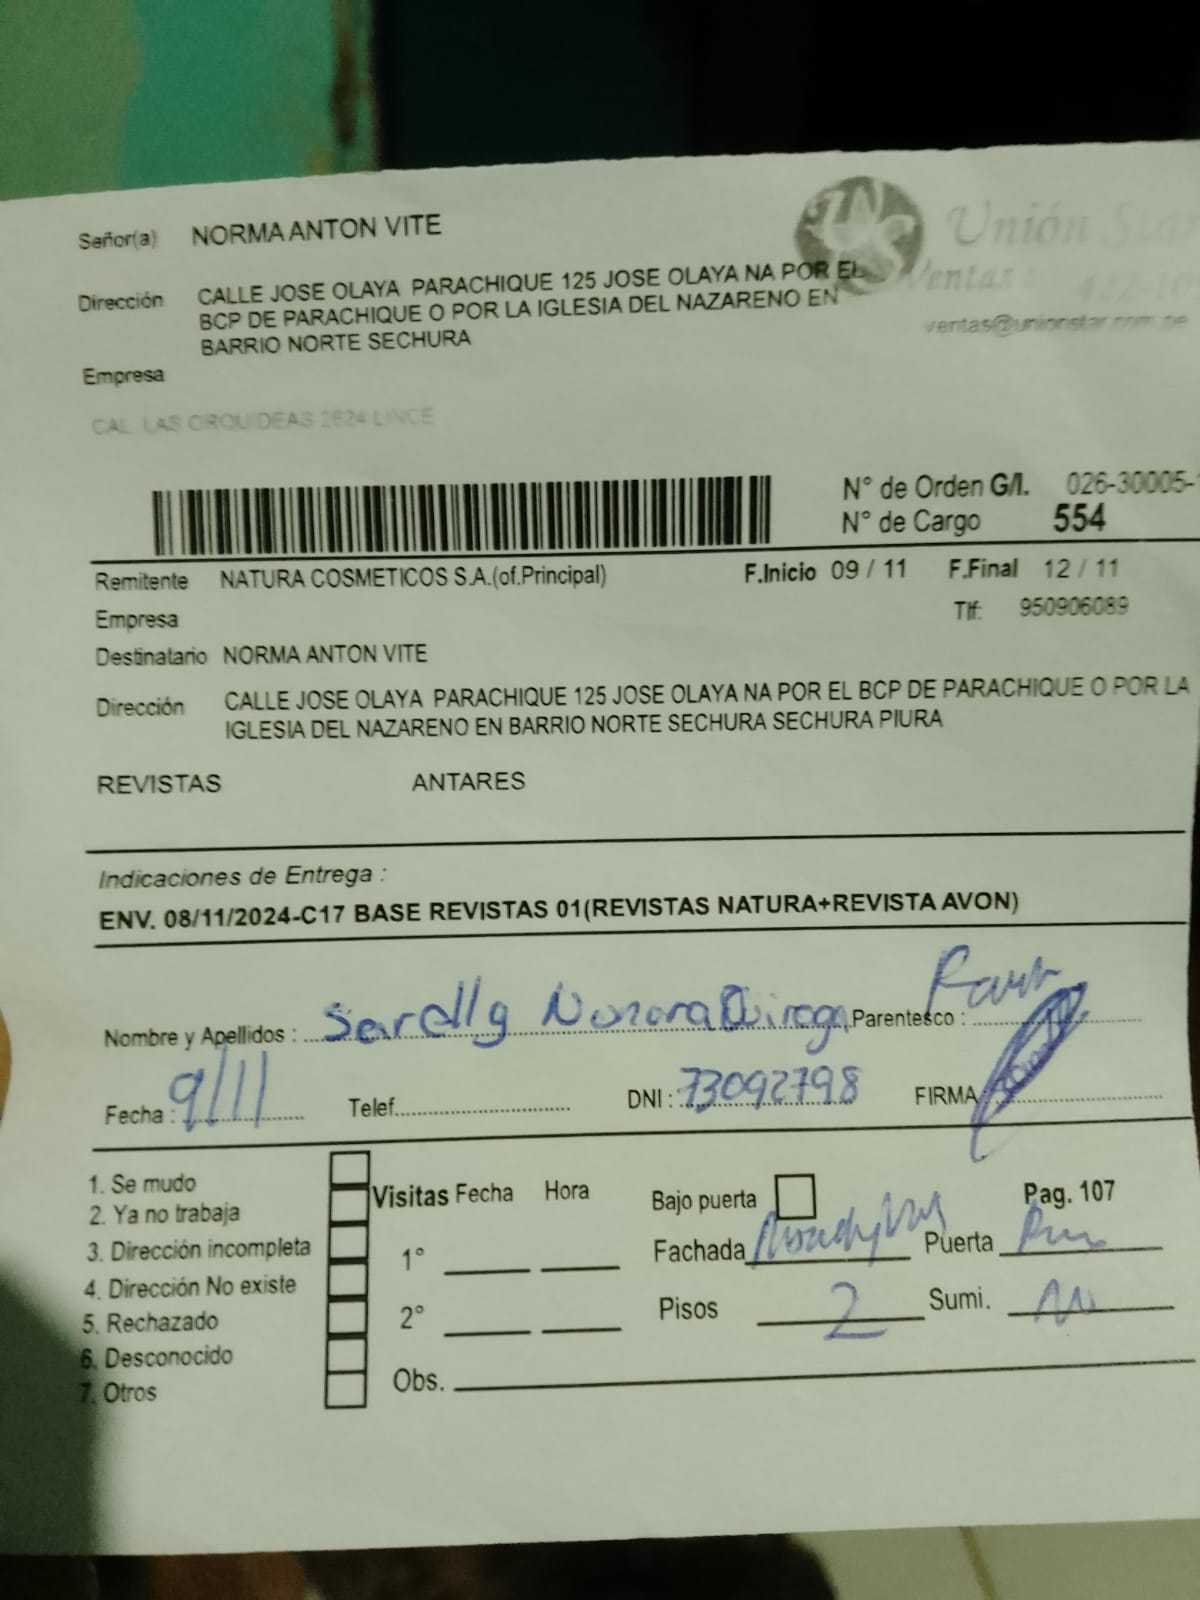 Señor(a) NORMA ANTON VITE
Unión Star
Dirección CALLE JOSE OLAYA PARACHIQUE 125 JOSE OLAYA NA POR EL
BCP DE PARACHIQUE O POR LA IGLESIA DEL NAZARENO EN
BARRIO NORTE SECHURA
Ventas
422-10
ventas@unionstar.com.pe
Empresa
CAL. LAS ORQUIDEAS 2624 LINCE
N° de Orden G/I. 026-30005-
N° de Cargo 554
Remitente NATURA COSMETICOS S.A.(of.Principal) F.Inicio 09 / 11 F.Final 12 / 11
Empresa Tlf: 950906089
Destinatario NORMA ANTON VITE
Dirección CALLE JOSE OLAYA PARACHIQUE 125 JOSE OLAYA NA POR EL BCP DE PARACHIQUE O POR LA
IGLESIA DEL NAZARENO EN BARRIO NORTE SECHURA SECHURA PIURA
REVISTAS ANTARES
Indicaciones de Entrega :
ENV. 08/11/2024-C17 BASE REVISTAS 01(REVISTAS NATURA+REVISTA AVON)
Nombre y Apellidos : Parentesco :
Fecha : 9/11 Telef. DNI : 73092798 FIRMA
1. Se mudo
2. Ya no trabaja
3. Dirección incompleta
4. Dirección No existe
5. Rechazado
6. Desconocido
7. Otros
Visitas Fecha Hora
1°
2°
Obs.
Bajo puerta Pag. 107
Fachada Puerta
Pisos 2 Sumi.